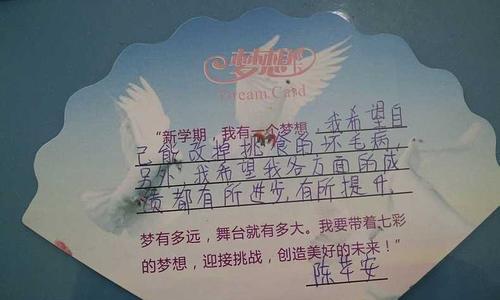 梦想卡
Dream Card
“新学期，我有一个梦想，我希望自
己能改掉挑食的坏毛病，
另外，我希望我各方面的成
绩都有所进步，有所提升，
梦有多远，舞台就有多大。我要带着七彩
的梦想，迎接挑战，创造美好的未来！”
陈安